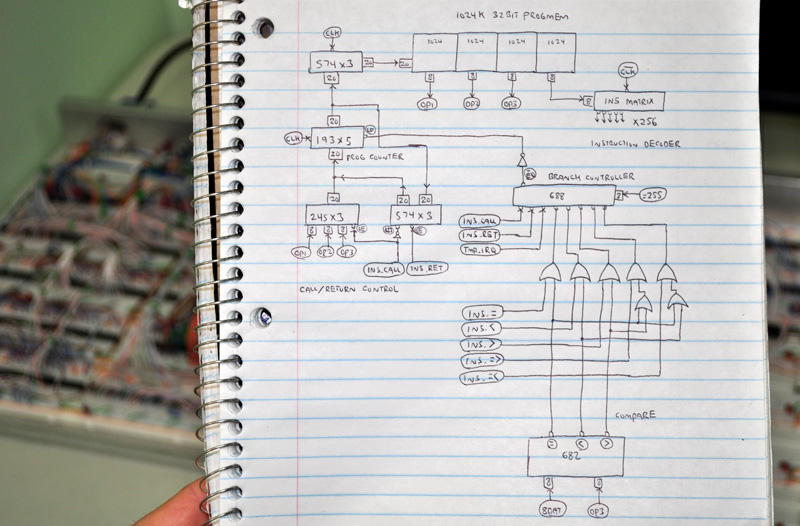 1024K 32BIT PROGMEM
CLK
574 x 3
20
20
1024
1024
1024
1024
20
8
8
8
8
OP1
OP2
OP3
CLK
8
INS MATRIX
x256
INSTRUCTION DECODER
20
CLK
193 x 5
20
PROG COUNTER
BRANCH CONTROLLER
688
8
=255
20
20
20
245 x 3
574 x 3
8
8
8
OP1
OP2
OP3
INS.CALL
INS.RET
CALL/RETURN CONTROL
INS.CALL
INS.RET
TMP.IRQ
INS.=
INS.<
INS.>
INS.=>
INS.=<
COMPARE
=
<
>
682
8
8
8DAT
OP3